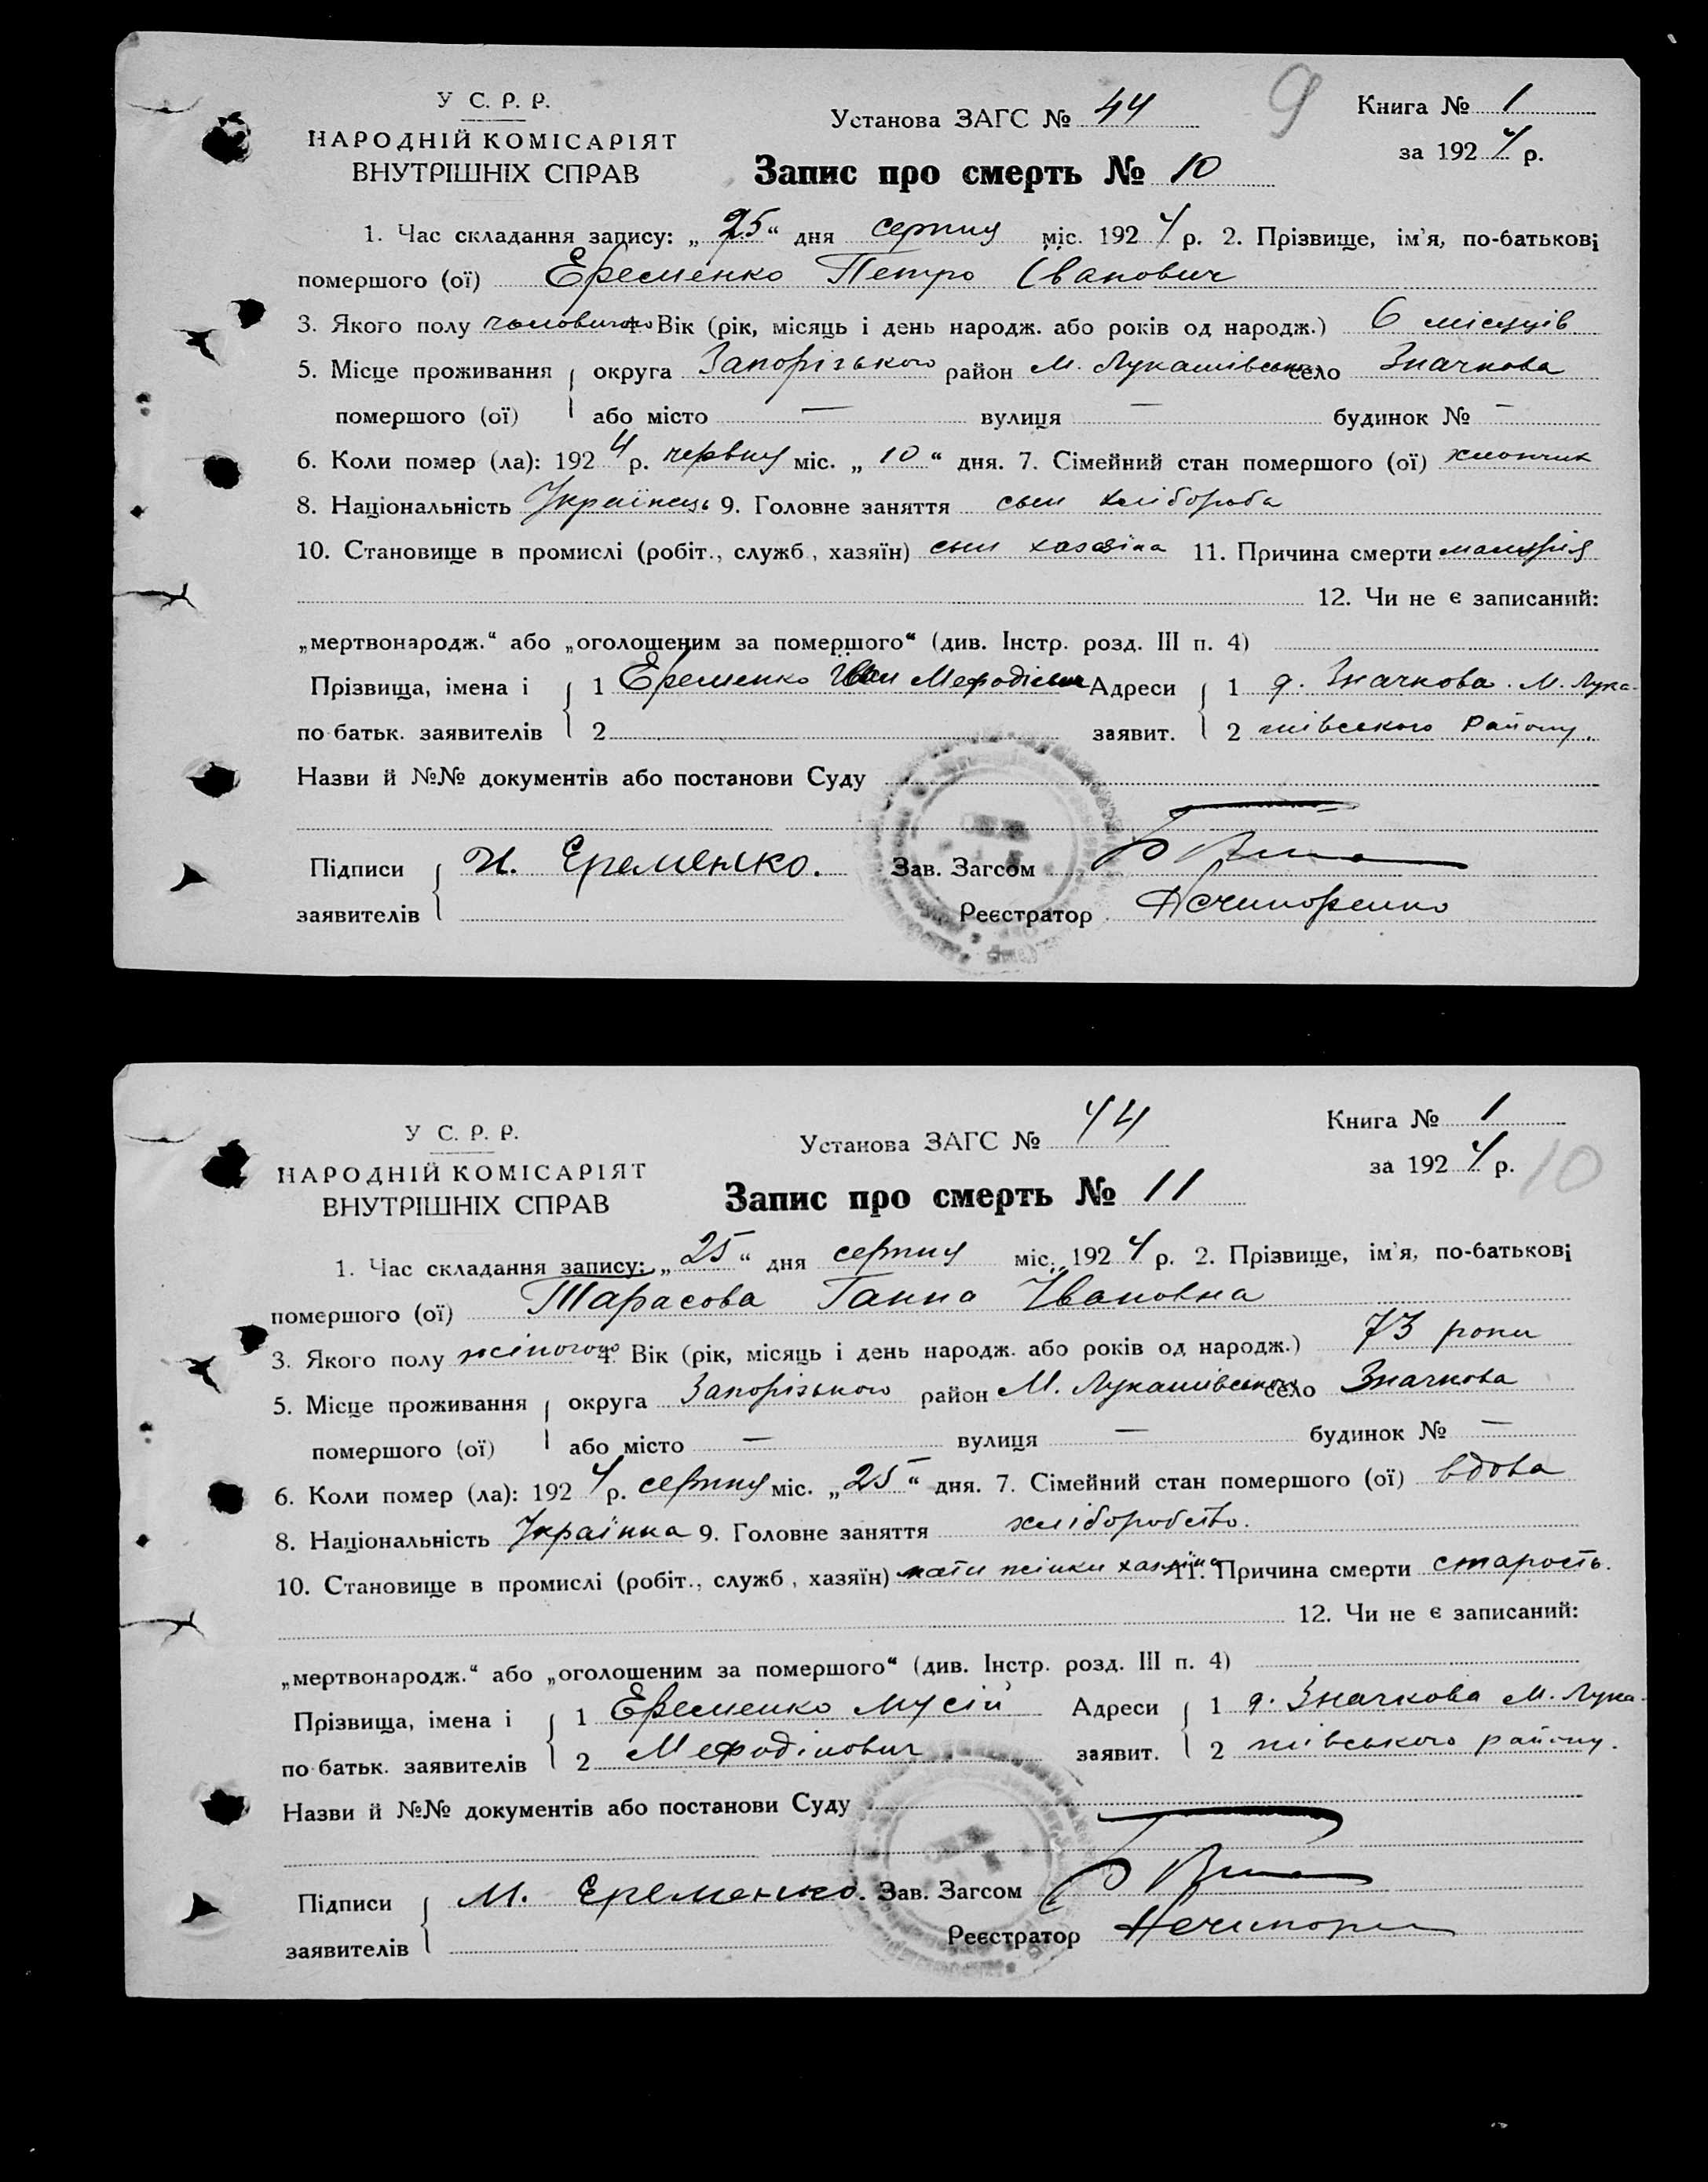 9
У С. Р. Р.
НАРОДНІЙ КОМІСАРІЯТ
ВНУТРІШНІХ СПРАВ
Установа ЗАГС № 44
Книга № 1
за 1924 р.
Запис про смерть № 10
1. Час складання запису: „25“ дня серпня міс. 1924 р. 2. Прізвище, ім'я, по-батькові
помершого (ої) Еременко Петро Іванович
3. Якого полу чоловичого 4. Вік (рік, місяць і день народж. або років од народж.) 6 місяців
5. Місце проживання округа Запорізького район М. Лукашівського село Значкова
помершого (ої) або місто — вулиця — будинок № —
6. Коли помер (ла): 1924 р. червня міс. „10“ дня. 7. Сімейний стан помершого (ої) хлопчик
8. Національність Українець 9. Головне заняття сын хлібороба
10. Становище в промислі (робіт., служб, хазяїн) сын хазяїна 11. Причина смерти малярія
12. Чи не є записаний:
„мертвонародж.“ або „оголошеним за помершого“ (див. Інстр. розд. III п. 4)
Прізвища, імена і 1 Еременко Іван Мефодієвич Адреси 1 д. Значкова. М. Лука-
по батьк. заявителів 2 заявит. 2 шівського Району.
Назви й №№ документів або постанови Суду
Підписи И. Еременко. Зав. Загсом
заявителів Реєстратор Нечипоренко
У С. Р. Р.
НАРОДНІЙ КОМІСАРІЯТ
ВНУТРІШНІХ СПРАВ
Установа ЗАГС № 44
Книга № 1
за 1924 р.
10
Запис про смерть № 11
1. Час складання запису: „25“ дня серпня міс. 1924 р. 2. Прізвище, ім'я, по-батькові
помершого (ої) Тарасова Ганна Івановна
3. Якого полу жіночого 4. Вік (рік, місяць і день народж. або років од народж.) 73 роки
5. Місце проживання округа Запорізького район М. Лукашівського село Значкова
помершого (ої) або місто — вулиця — будинок № —
6. Коли помер (ла): 1924 р. серпня міс. „25“ дня. 7. Сімейний стан помершого (ої) вдова
8. Національність Українка 9. Головне заняття хліборобство.
10. Становище в промислі (робіт., служб, хазяїн) мати жінки хазяїна 11. Причина смерти старость.
12. Чи не є записаний:
„мертвонародж.“ або „оголошеним за помершого“ (див. Інстр. розд. III п. 4)
Прізвища, імена і 1 Еременко Мусій Адреси 1 д. Значкова М. Лука-
по батьк. заявителів 2 Мефодіович заявит. 2 шівського району.
Назви й №№ документів або постанови Суду
Підписи М. Еременко. Зав. Загсом
заявителів Реєстратор